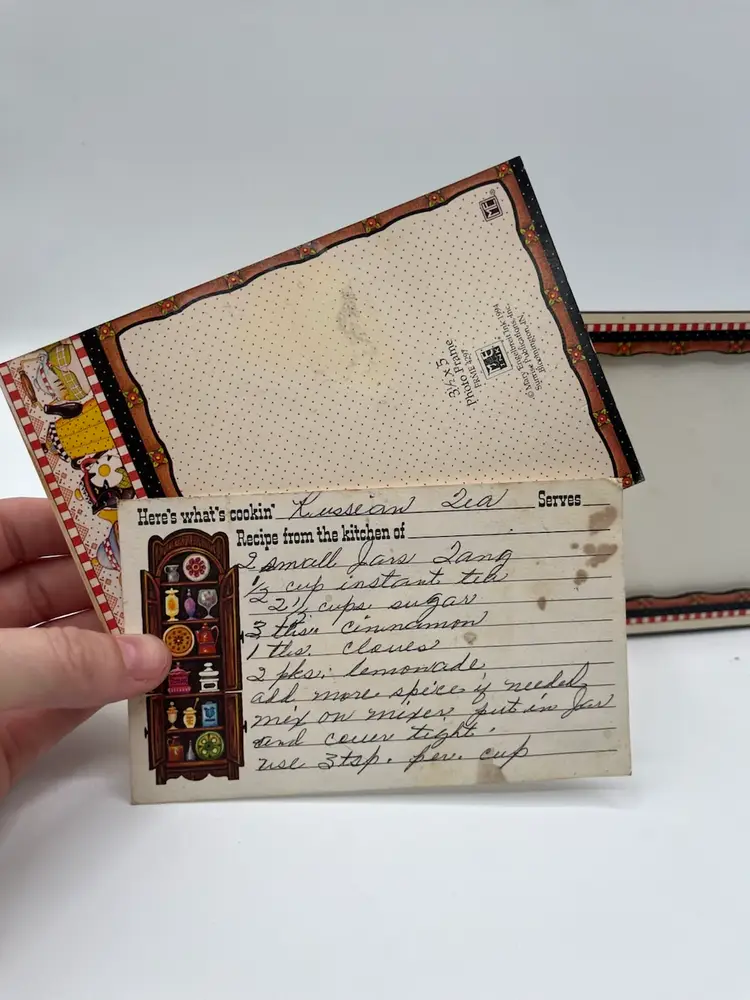 ME
3½ x 5
Photo Frame
FRAME 4297
© Mary Engelbreit Ink 1994
Sunrise Publications, Inc.
Bloomington, IN.
Here's what's cookin' Russian Tea Serves
Recipe from the kitchen of
2 small Jars Tang
½ cup instant tea
2 2½ cups sugar
3 tbs. cinnamon
1 tbs. cloves
2 pks. lemonade
add more spice if needed
mix on mixer put in Jar
and cover tight.
use 3 tsp. per. cup